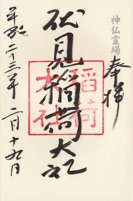 奉拝
神仏霊場
伏見稲荷大社
稲荷
大社
平成二十三年二月十九日